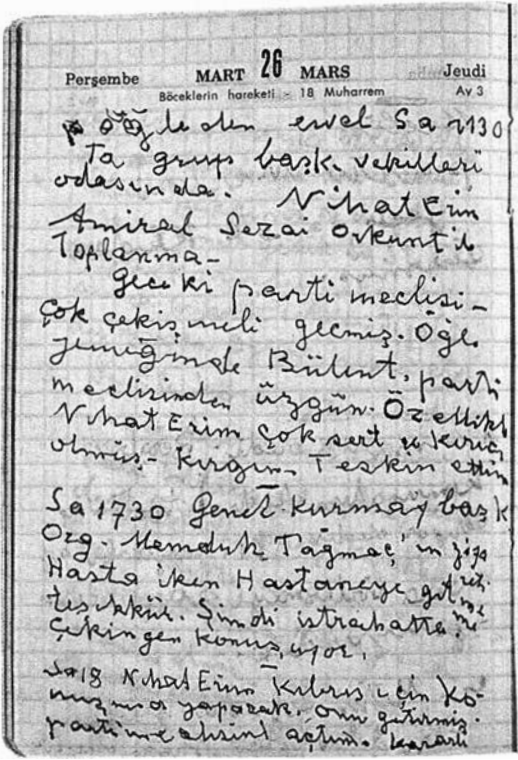 Perşembe MART 26 MARS Jeudi
Böceklerin hareketi - 18 Muharrem Av 3
öğleden evvel Sa 1130
Ta grup başk. vekilleri
odasında. Nihat Erim
Amiral Sezai Orkunt'la
Toplanma-
Geceki parti meclisi-
çok çekişmeli geçmiş. Öğle
yemeğinde Bülent, parti
meclisinden üzgün. Özellikle
Nihat Erim çok sert ve kırıcı
olmuş- Kırgın- Teskin ettim
Sa 1730 Genel Kurmay başk
Org. Memduh Tağmaç'ın ziya
reti.
Hasta iken Hastaneye gitme
me
teşekkür. Şimdi istirahatte.
Çekingen konuşuyor.
Sa 18 Nihat Erim Kıbrıs için ko-
nuşma yapacak. Onu getirmiş.
parti meclisini açtım. Kararlı